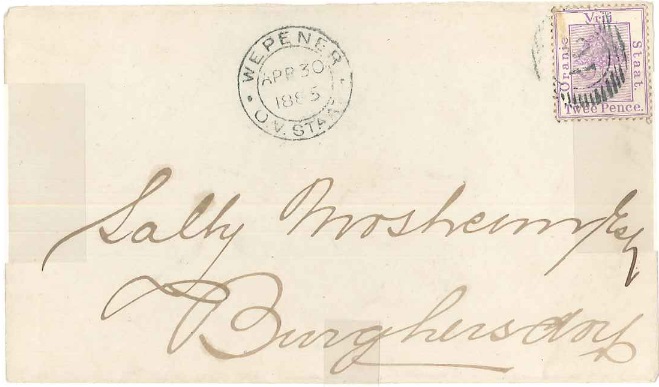 WEPENER
APR 30
1885
O.V. STAAT
Vrij
Oranje
Staat.
Twee Pence.
Sally Mosheim Esq
Burghersdorp